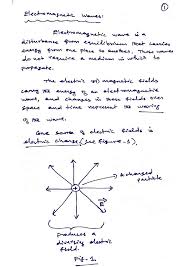 ①
Electromagnetic Waves:
Electromagnetic wave is a
disturbance from equilibrium that carries
energy from one place to another. These waves
do not require a medium in which to
propagate.
The electric and magnetic fields
carry the energy of an electromagnetic
wave, and changes in these fields over
space and time represent the waving
of the wave.
One source of electric fields is
electric charge (see Figure-1).
A charged
particle
+
E
Produces a
diverging electric
field.
Fig-1.